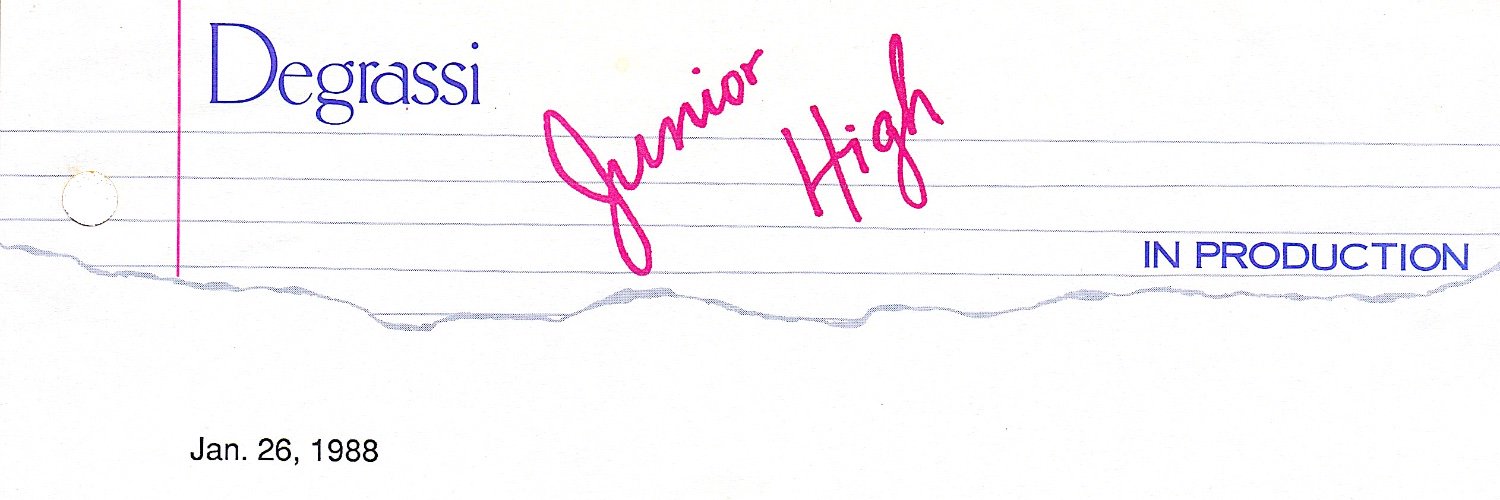 Degrassi
Junior High
IN PRODUCTION
Jan. 26, 1988